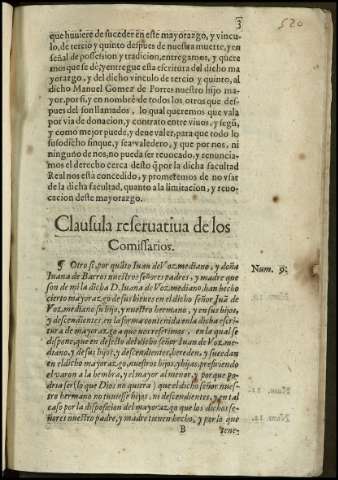 3
520
que huuiere de suceder en este mayorazgo, y vincu-
lo, de tercio y quinto despues de nuestra muerte, y en
señal de possession y tradicion, entregamos, y quere
mos que se dè, y entregue esta escritura del dicho ma
yorazgo, y del dicho vinculo de tercio y quinto, al
dicho Manuel Gomez de Porres nuestro hijo ma-
yor, por si, y en nombre de todos los otros que des-
pues del son llamados, lo qual queremos que vala
por via de donacion, y contrato entre viuos, y segũ,
y como mejor puede, y deue valer, para que todo lo
susodicho finque, y sea valedero, y que por nos, ni
ninguno de nos, no pueda ser reuocado, y renuncia-
mos el derecho cerca desto q̃ por la dicha facultad
Real nos esta concedido, y prometemos de no vsar
de la dicha facultad, quanto a la limitacion, y reuo-
cacion deste mayorazgo.
Clausula reseruatiua de los
Comissarios.
¶ Otro si, por quãto Iuan de Vozmediano, y doña
Iuana de Barros nuestros señores padres, y madre que
son de mi la dicha D. Iuana de Vozmediano, han hecho
cierto mayorazgo de sus bienes en el dicho señor Iuã de
Vozmediano su hijo, y nuestro hermano, y en sus hijos,
y descendientes, en la forma contenida en la dicha escri-
tura de mayorazgo a que nos referimos, en la qual se
dispone, que en defecto del dicho señor Iuan de Vozme-
diano, y de sus hijos, y descendientes, hereden, y sucedan
en el dicho mayorazgo, nuestros hijos, y hijas, prefiriendo
el varon a la hembra, y el mayor al menor, y porque po-
dra ser (lo que Dios no quiera) que el dicho señor nues-
tro hermano no tuuiesse hijos, ni descendientes, y en tal
caso por la disposicion del mayorazgo que los dichos se-
ñores nuestro padre, y madre tienen hecho, y por lo que
Num. 9.
B
tene-